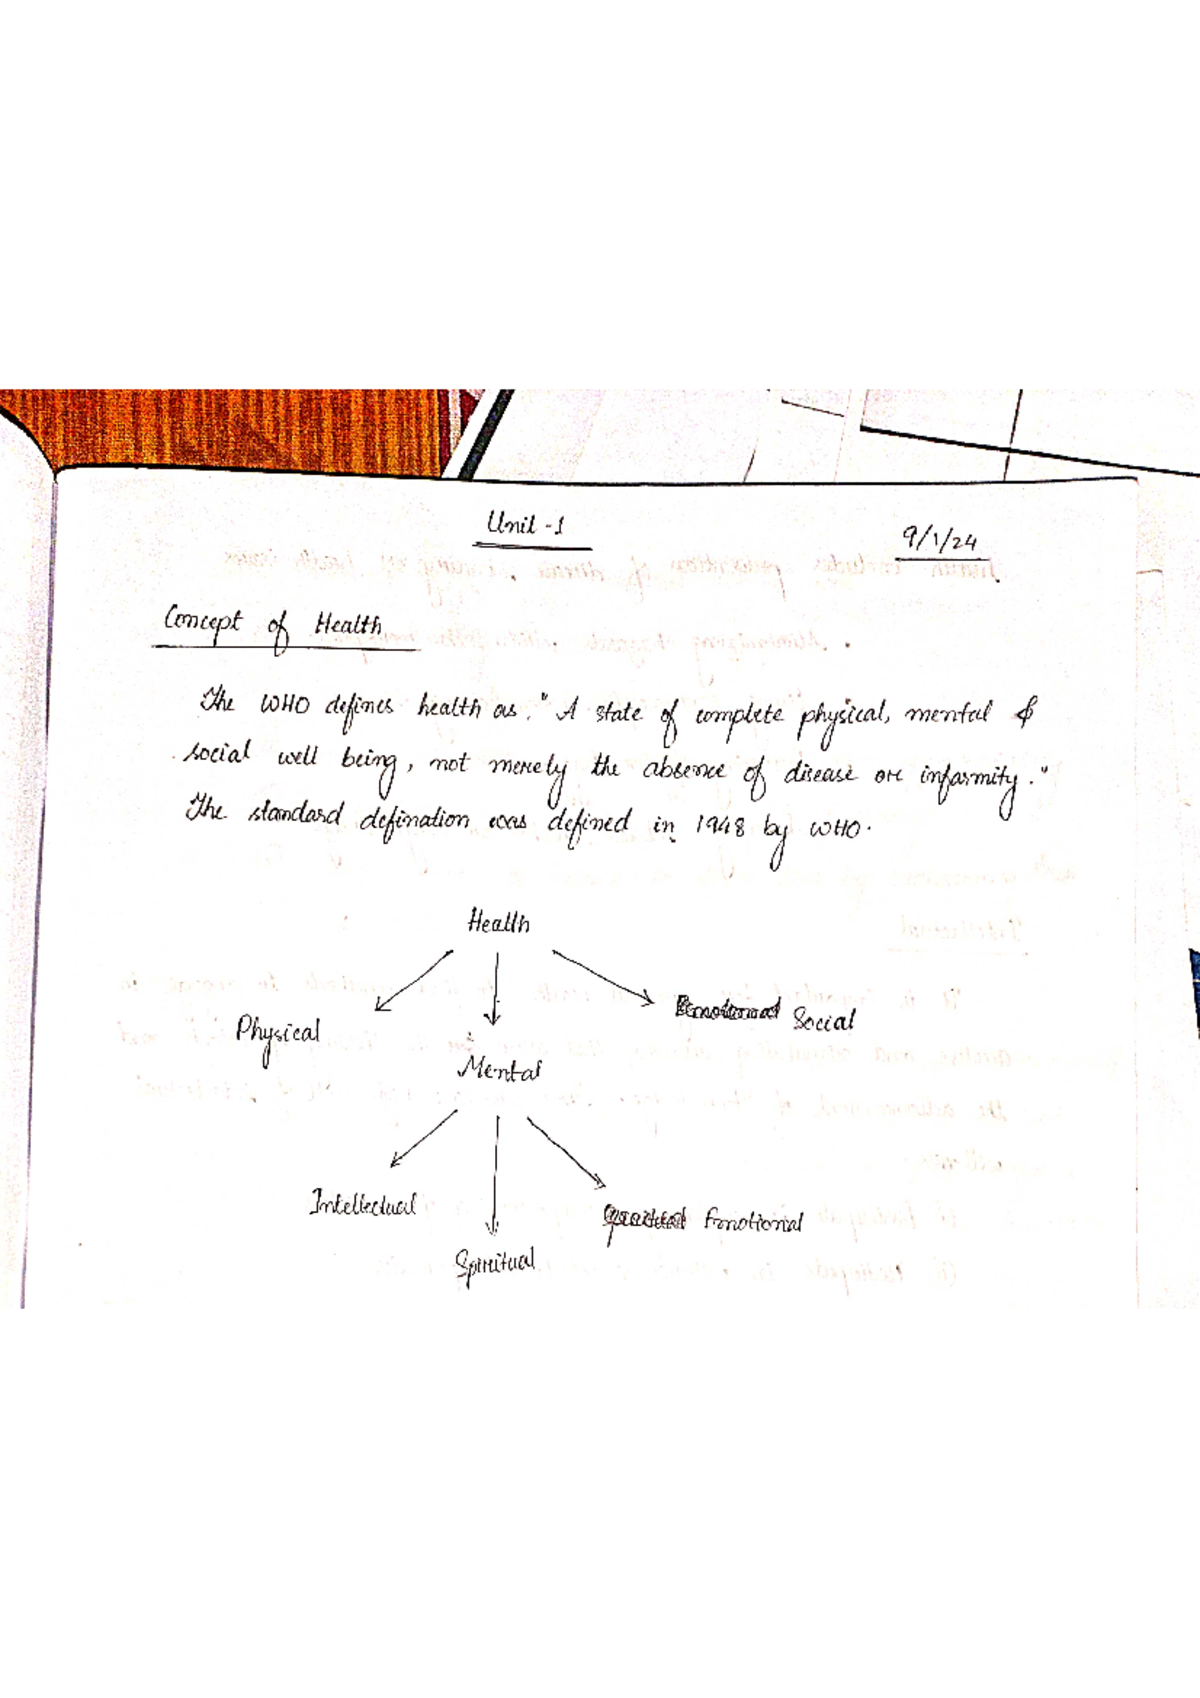 Unit - 1
9/1/24
Concept of Health
The WHO defines health as, "A state of complete physical, mental &
social well being, not merely the absence of disease or infarmity."
The standard defination was defined in 1948 by WHO.
Health
Physical
Social
Mental
Intellectual
Emotional
Spiritual